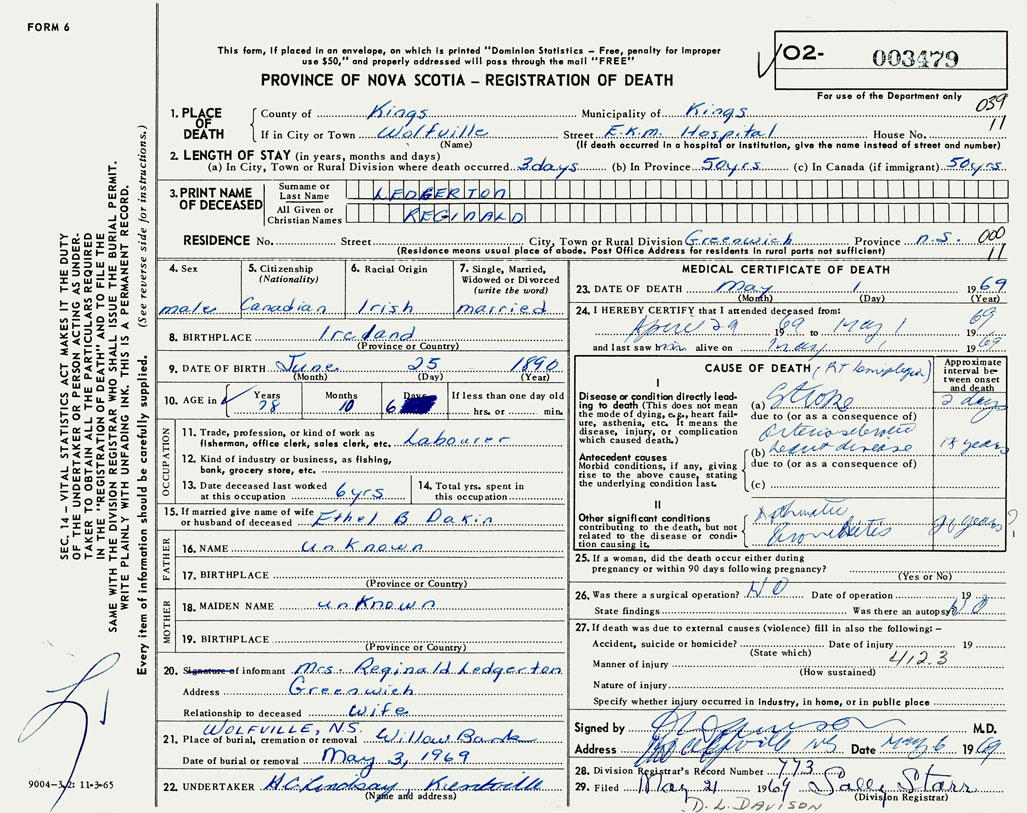 FORM 6
This form, if placed in an envelope, on which is printed "Dominion Statistics – Free, penalty for improper
use $50," and properly addressed will pass through the mail "FREE"
PROVINCE OF NOVA SCOTIA – REGISTRATION OF DEATH
O2- 003479
For use of the Department only
039
11
1. PLACE OF DEATH
County of Kings Municipality of Kings
If in City or Town Wolfville Street E.K.M. Hospital House No.
(Name) (If death occurred in a hospital or institution, give the name instead of street and number)
2. LENGTH OF STAY (in years, months and days)
(a) In City, Town or Rural Division where death occurred 3 days (b) In Province 50 yrs. (c) In Canada (if immigrant) 50 yrs.
3. PRINT NAME OF DECEASED
Surname or Last Name LEDGERTON
All Given or Christian Names REGINALD
RESIDENCE No. Street City, Town or Rural Division Greenwich Province n.s. 000
(Residence means usual place of abode. Post Office Address for residents in rural parts not sufficient) 11
4. Sex male
5. Citizenship (Nationality) Canadian
6. Racial Origin Irish
7. Single, Married, Widowed or Divorced (write the word) married
8. BIRTHPLACE Ireland
(Province or Country)
9. DATE OF BIRTH June 25 1890
(Month) (Day) (Year)
10. AGE in Years 78 Months 10 Days 6 If less than one day old hrs. or min.
OCCUPATION
11. Trade, profession, or kind of work as fisherman, office clerk, sales clerk, etc. Labourer
12. Kind of industry or business, as fishing, bank, grocery store, etc.
13. Date deceased last worked at this occupation 6 yrs
14. Total yrs. spent in this occupation
15. If married give name of wife or husband of deceased Ethel B Dakin
FATHER
16. NAME unknown
17. BIRTHPLACE
(Province or Country)
MOTHER
18. MAIDEN NAME unknown
19. BIRTHPLACE
(Province or Country)
20. Signature of informant Mrs. Reginald Ledgerton
Address Greenwich
Relationship to deceased wife
WOLFVILLE, N.S.
21. Place of burial, cremation or removal Willow Bank
Date of burial or removal May 3, 1969
22. UNDERTAKER H.C. Lindsay Kentville
(Name and address)
MEDICAL CERTIFICATE OF DEATH
23. DATE OF DEATH May 1 1969
(Month) (Day) (Year)
24. I HEREBY CERTIFY that I attended deceased from:
April 29 1969 to May 1 1969
and last saw him alive on May 1 1969
CAUSE OF DEATH (Rt hemiplegia)
Approximate interval between onset and death
I
Disease or condition directly leading to death (This does not mean the mode of dying, e.g., heart failure, asthenia, etc. It means the disease, injury, or complication which caused death.)
(a) Stroke 2 days
due to (or as a consequence of)
Antecedent causes
Morbid conditions, if any, giving rise to the above cause, stating the underlying condition last.
Arteriosclerotic
(b) heart disease years
due to (or as a consequence of)
(c)
II
Other significant conditions contributing to the death, but not related to the disease or condition causing it.
Asthmatic
Bronchitis 20 years?
25. If a woman, did the death occur either during
pregnancy or within 90 days following pregnancy?
(Yes or No)
26. Was there a surgical operation? NO Date of operation 19
State findings Was there an autopsy? NO
27. If death was due to external causes (violence) fill in also the following: –
Accident, suicide or homicide? Date of injury 19
(State which) 412.3
Manner of injury
(How sustained)
Nature of injury
Specify whether injury occurred in Industry, in home, or in public place
Signed by M.D.
Address Wolfville NS Date May 6 1969
28. Division Registrar's Record Number 773
29. Filed May 21 1969 Sally Starr
(Division Registrar)
D. L. DAVISON
SEC. 14 – VITAL STATISTICS ACT MAKES IT THE DUTY
OF THE UNDERTAKER OR PERSON ACTING AS UNDER-
TAKER TO OBTAIN ALL THE PARTICULARS REQUIRED
IN THE "REGISTRATION OF DEATH" AND TO FILE THE
SAME WITH THE DIVISION REGISTRAR WHO SHALL ISSUE THE BURIAL PERMIT.
WRITE PLAINLY WITH UNFADING INK. THIS IS A PERMANENT RECORD.
Every item of information should be carefully supplied. (See reverse side for instructions.)
9004-3.2: 11-3-65